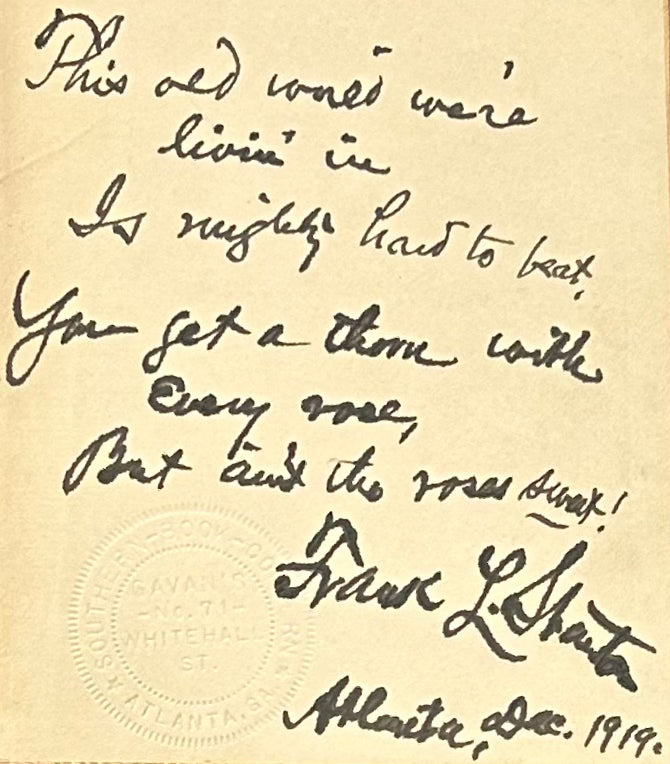 This old world we're
livin' in
Is mighty hard to beat,
You get a thorn with
Every rose,
But ain't the roses sweet!
Frank L. Stanton
Atlanta, Dec. 1919.
SOUTHERN-BOOK-CO
GAVAN'S
-No. 71-
WHITEHALL
ST.
ATLANTA, GA